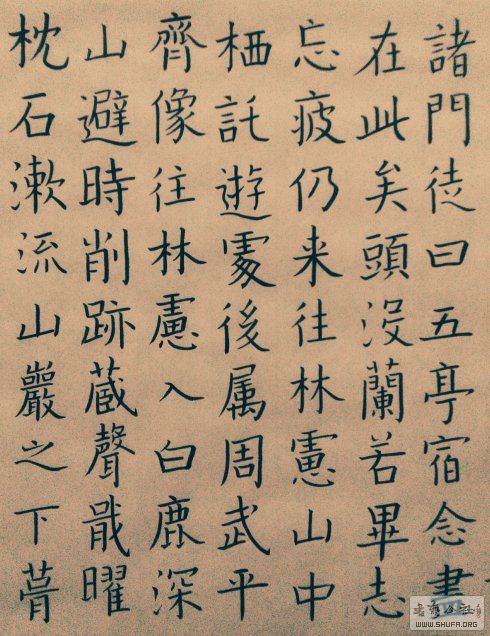 諸門徒曰五亭宿念書
在此矣頭没蘭若畢志
忘疲仍来往林慮山中
栖託遊處後属周武平
齊像往林慮入白鹿深
山避時削跡蔵聲戢曜
枕石漱流山巖之下葺
WWW.SHUFA.ORG